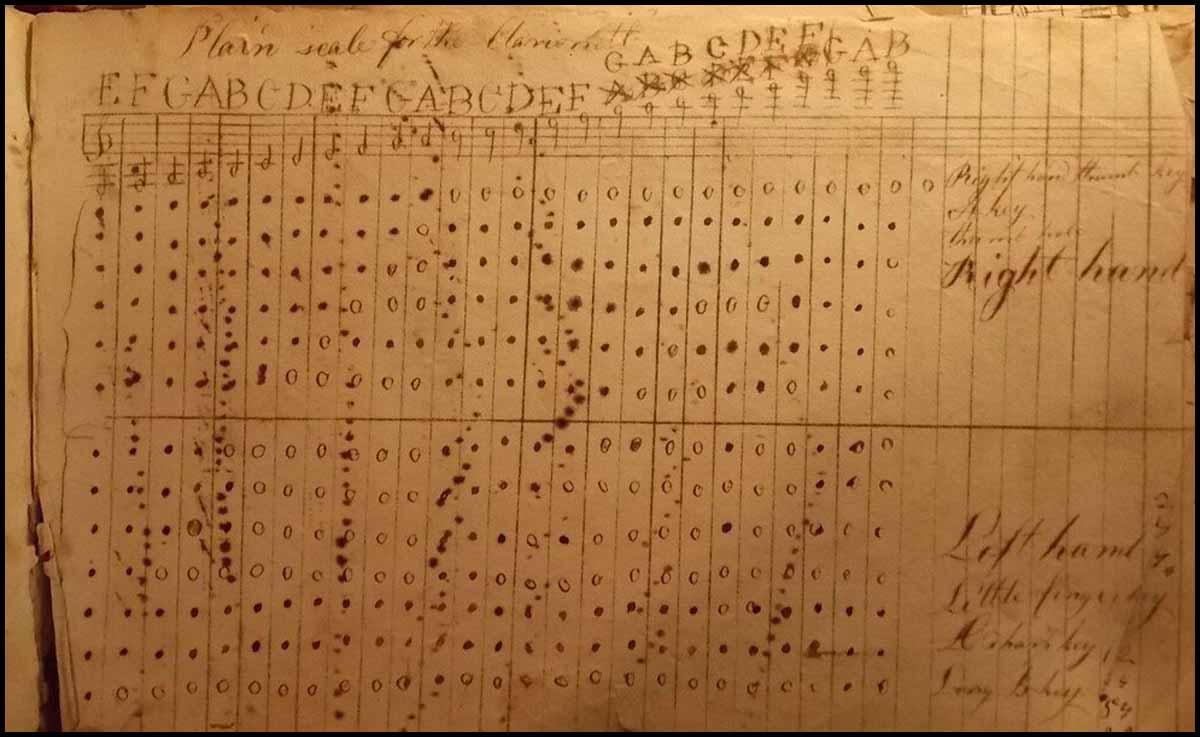 Plain scale for the Clarionett
G A B C D E F G A B
E F G A B C D E F G A B C D E F
Right hand thumb key
A key
thumb hole
Right hand
Left hand
Little finger key
Long B key